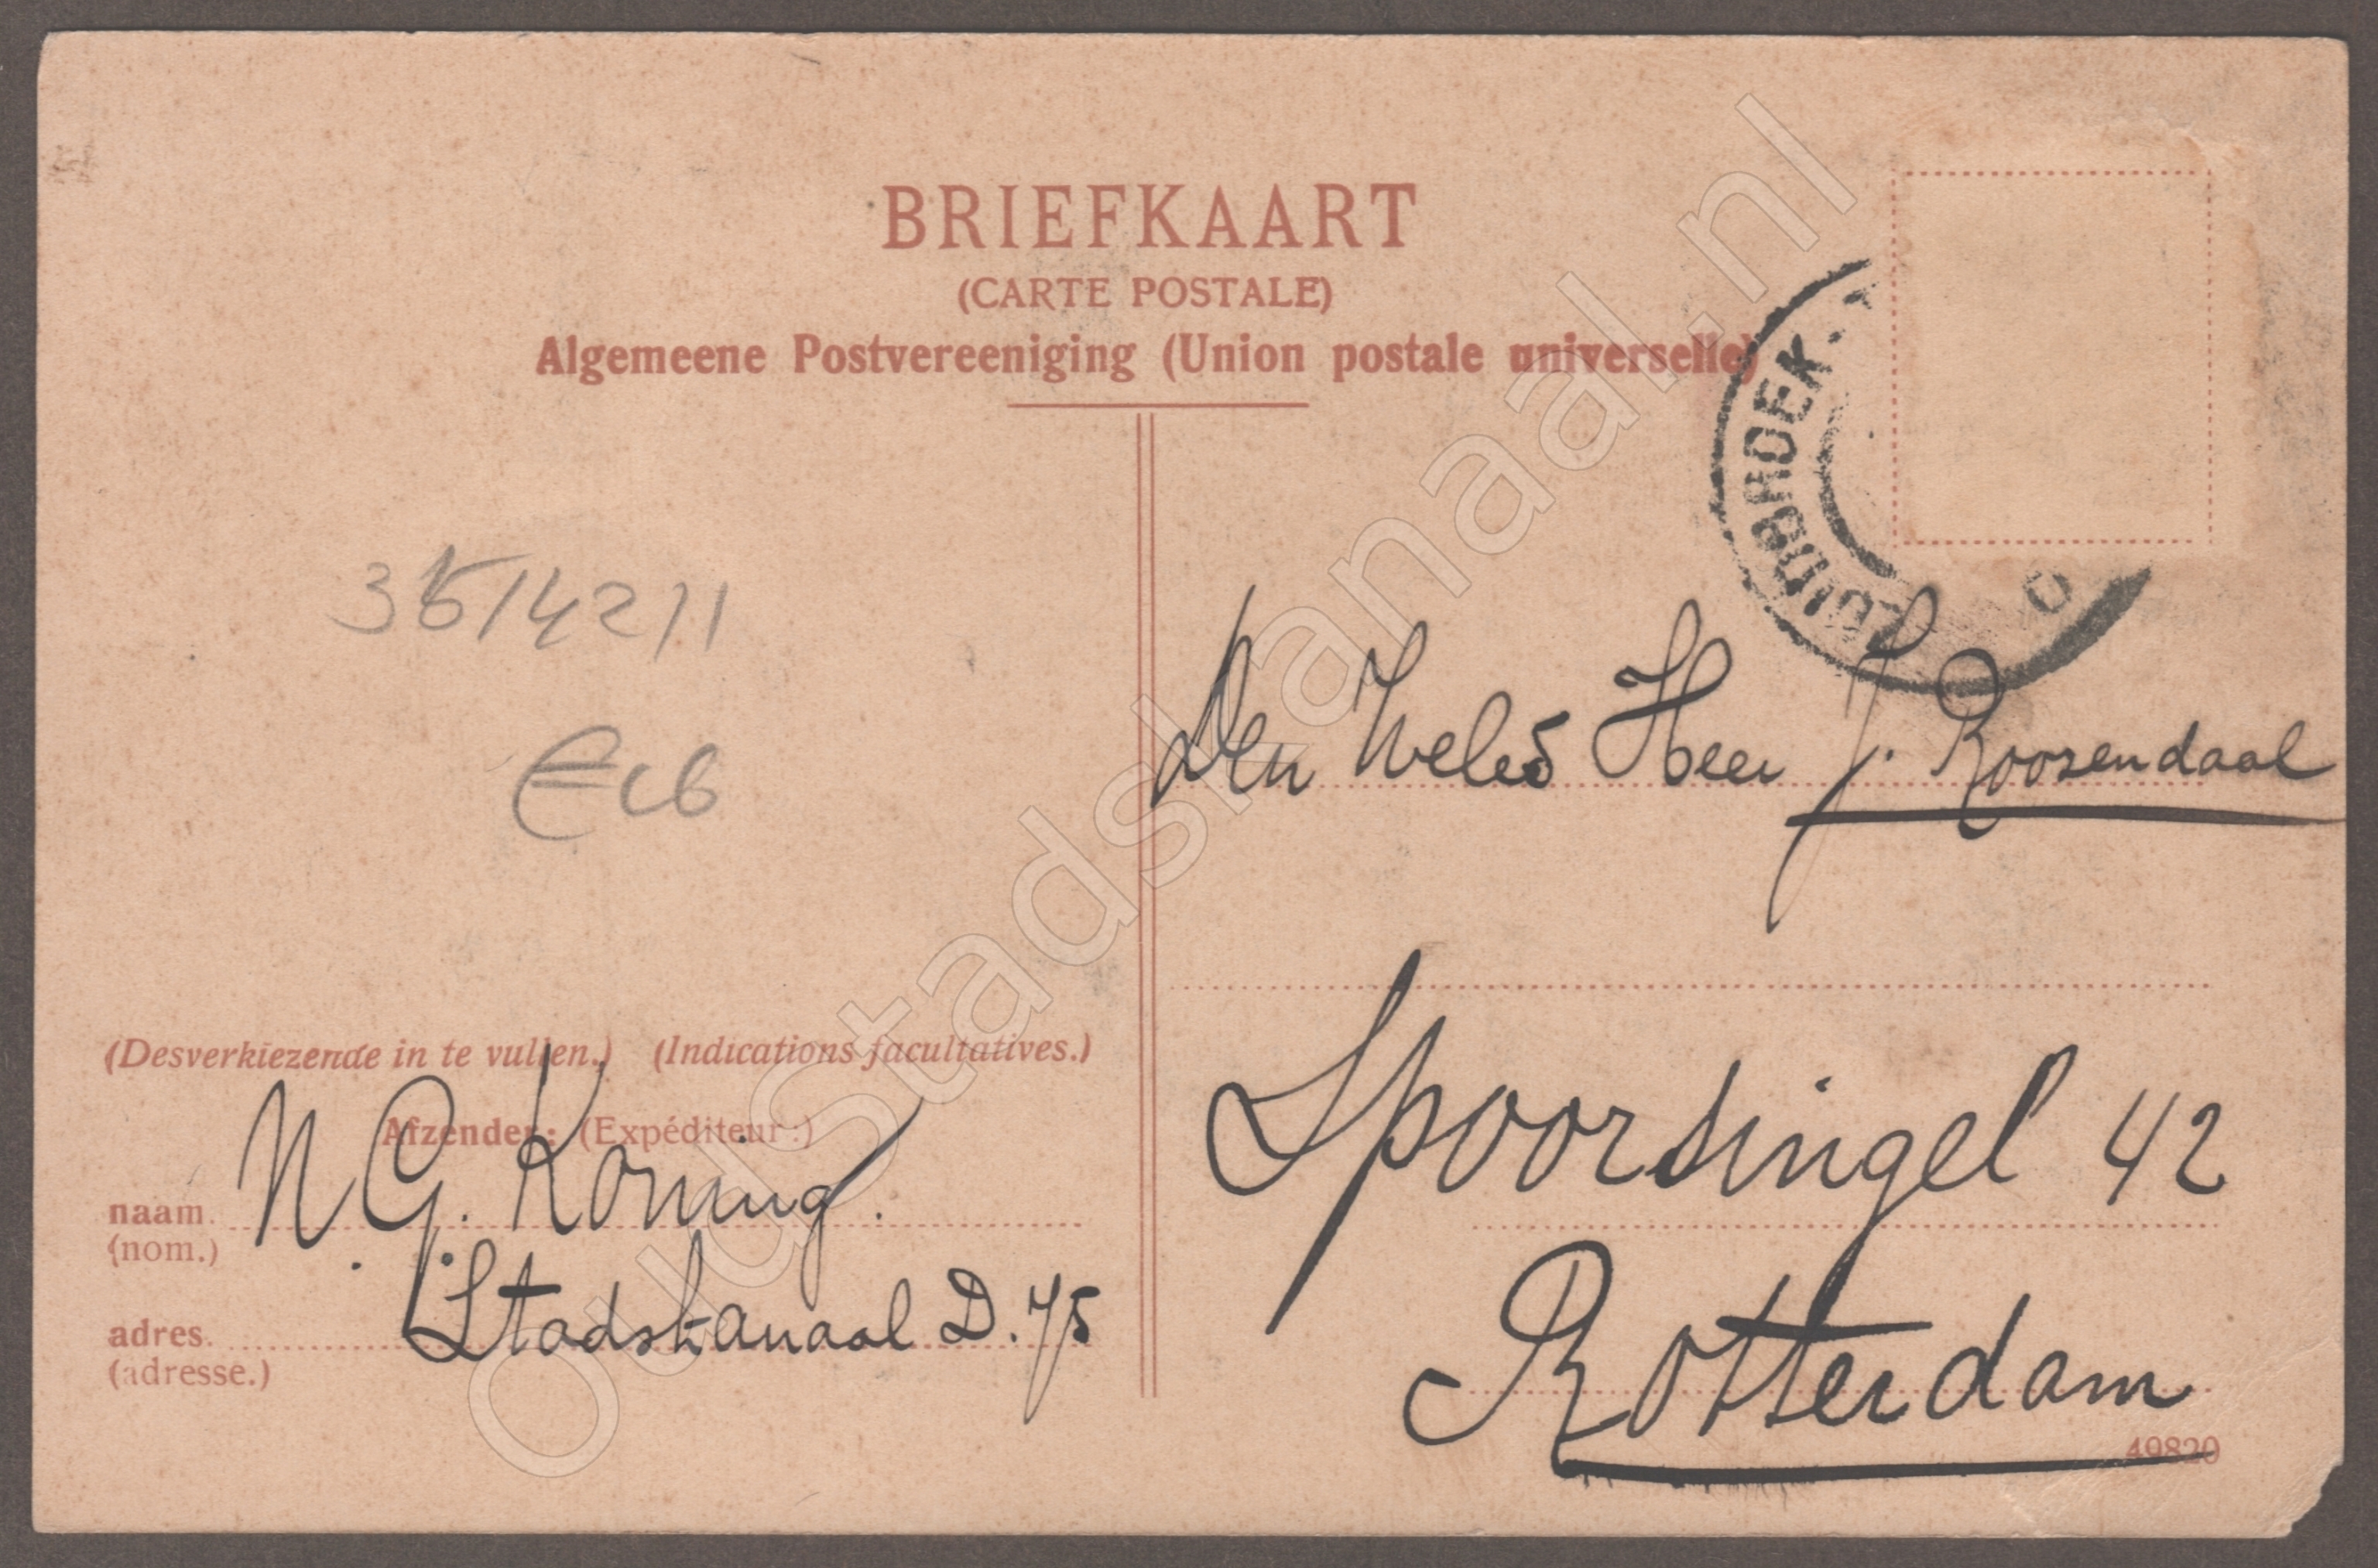 BRIEFKAART
(CARTE POSTALE)
Algemeene Postvereeniging (Union postale universelle)
ZUIDBROEK
Den Weled Heer J. Roosendaal
Spoorsingel 42
Rotterdam
49820
(Desverkiezende in te vullen.) (Indications facultatives.)
Afzender: (Expéditeur:)
naam. N. G. Koning.
(nom.)
adres. Stadskanaal D. 75
(adresse.)
OudStadskanaal.nl